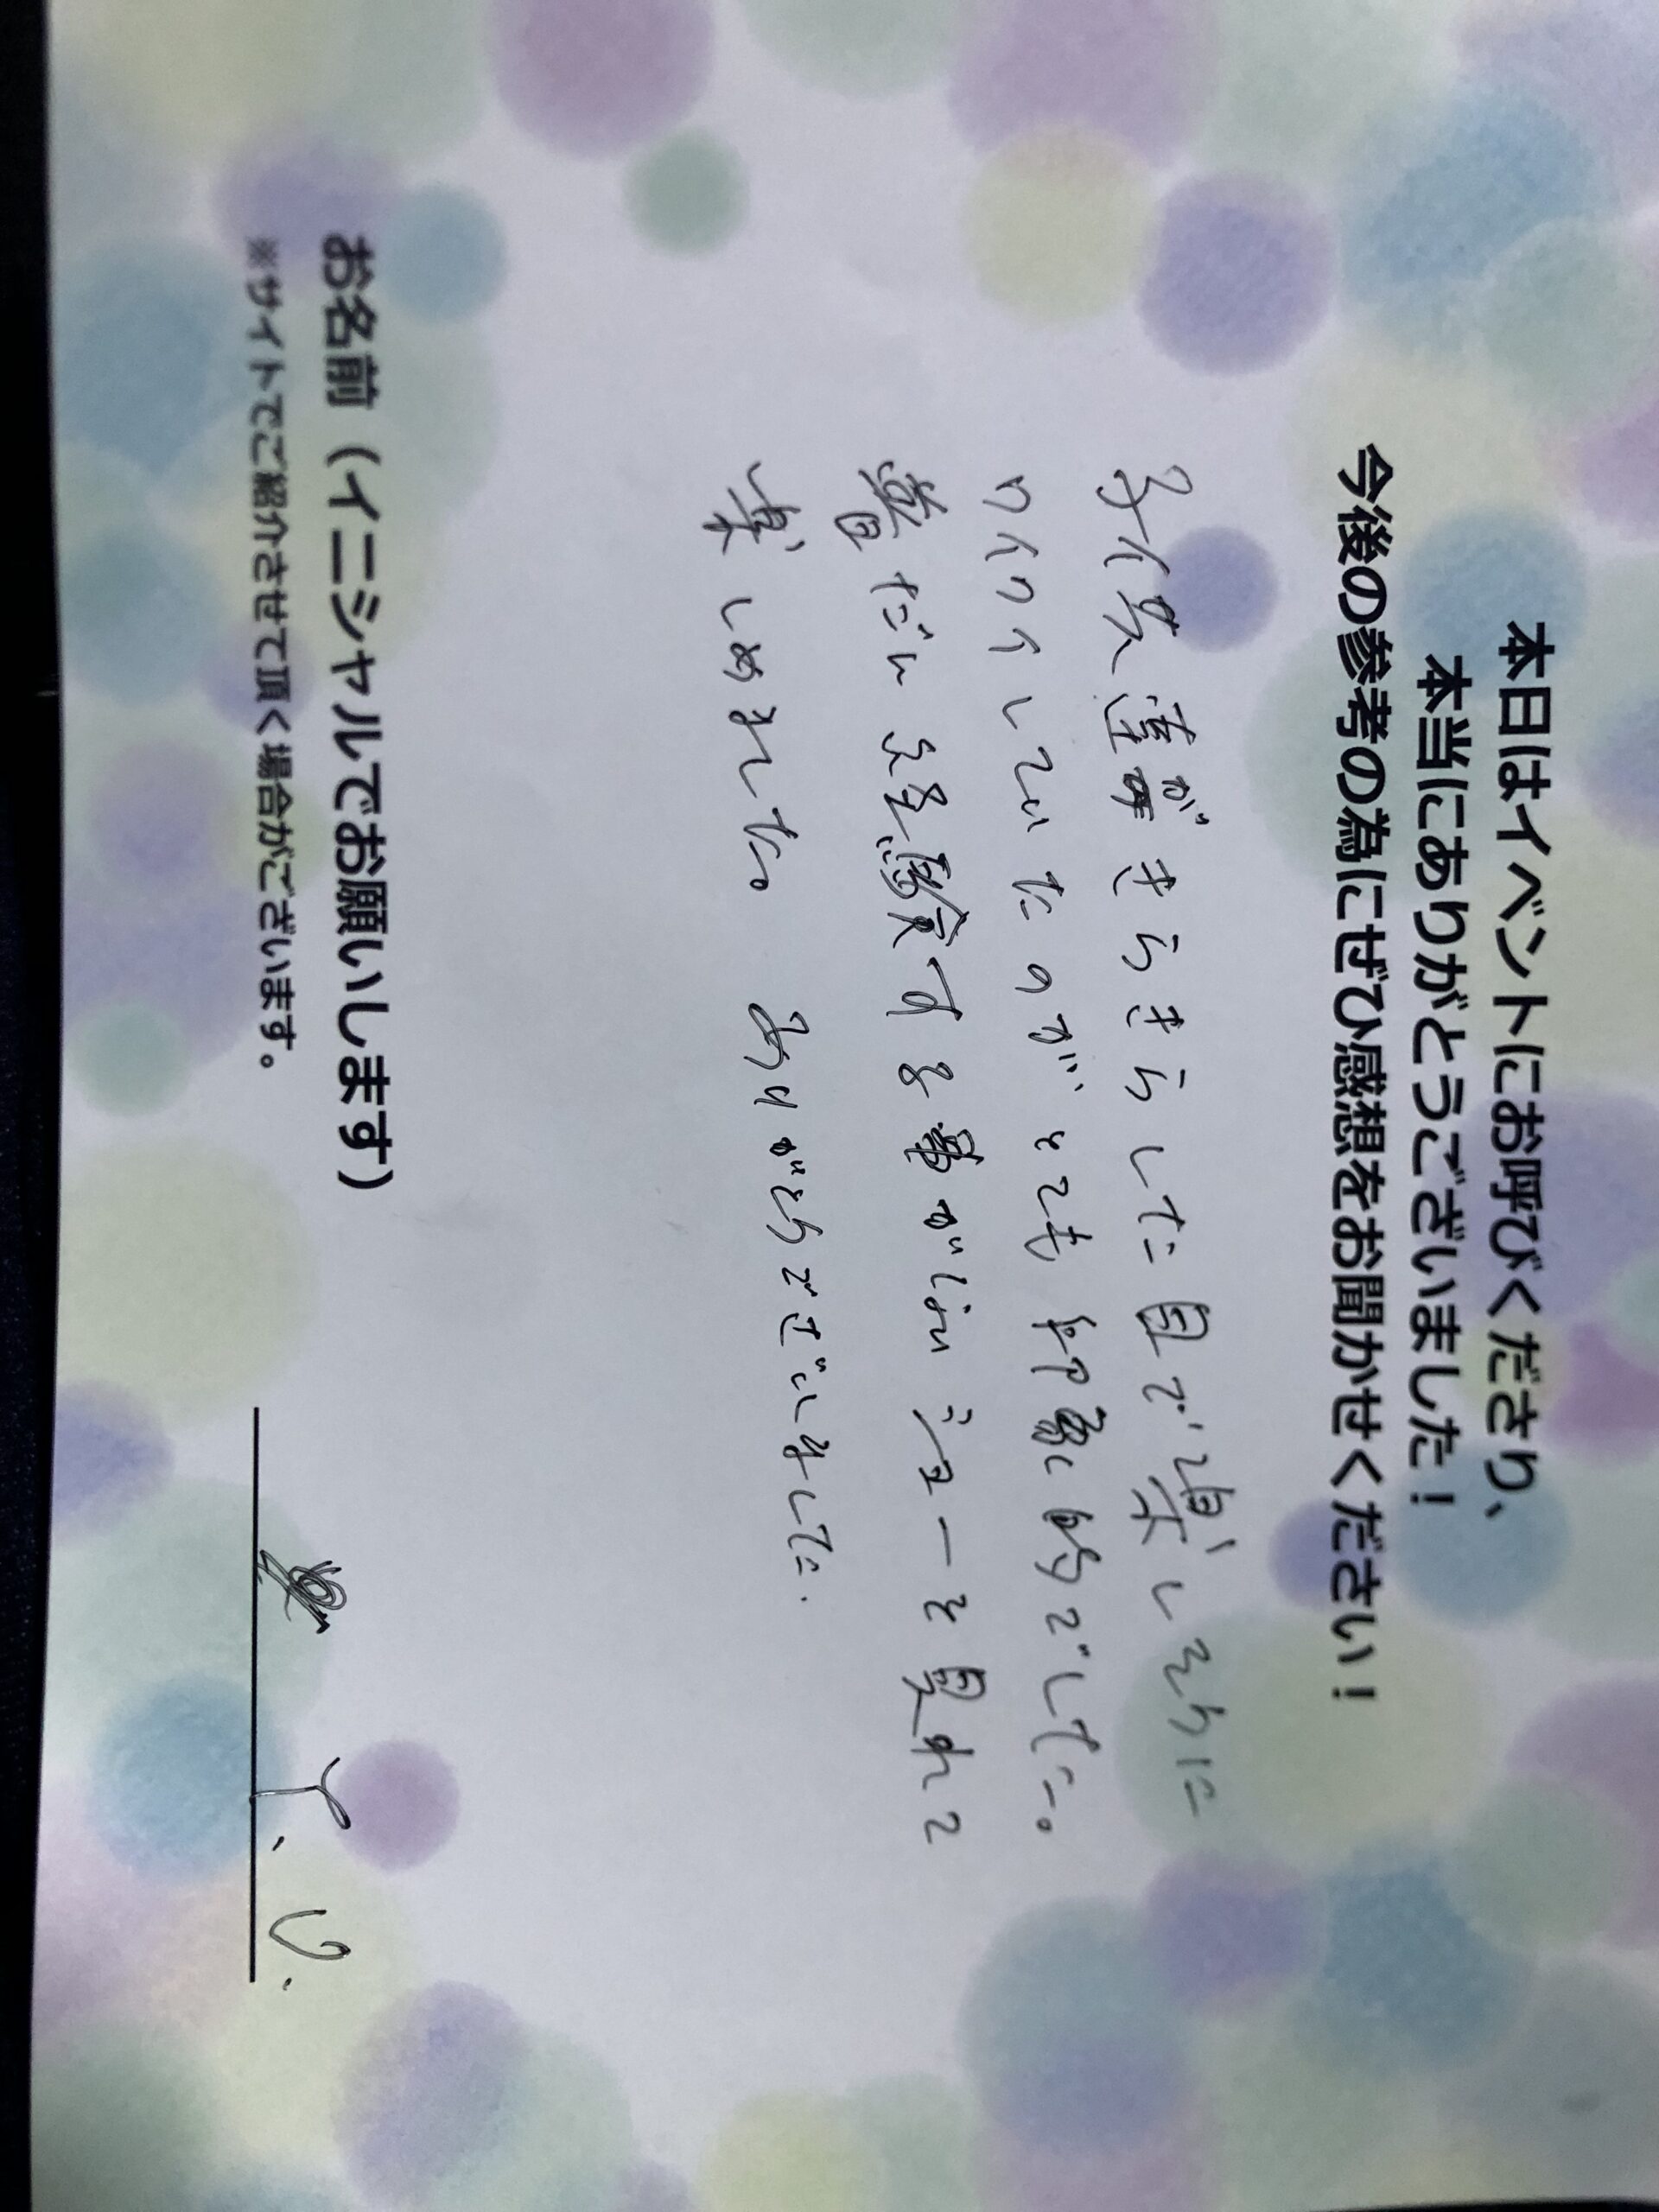 本日はイベントにお呼びくださり、
本当にありがとうございました！
今後の参考の為にぜひ感想をお聞かせください！
子供達がきらきらした目で楽しそうに
ワイワイしていたのが、とても印象的でした。
普だん経験する事がないショーを見れて
楽しめました。ありがとうございました.
お名前（イニシャルでお願いします）
※サイトでご紹介させて頂く場合がございます。
Y、U.